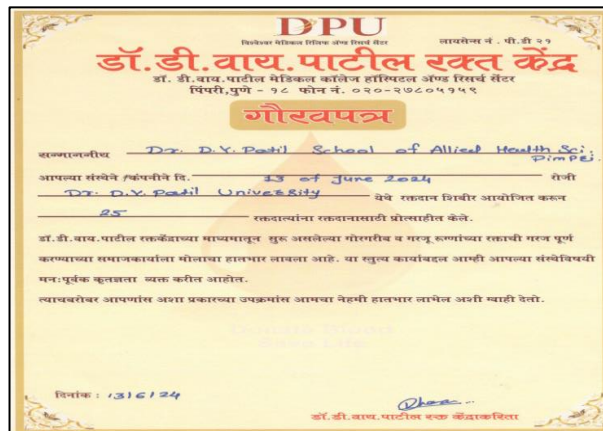 DPU
विश्वेश्वर मेडिकल रिलिफ अँण्ड रिसर्च सेंटर
लायसेन्स नं. पी.डी २१
डॉ.डी.वाय.पाटील रक्त केंद्र
डॉ. डी.वाय.पाटील मेडिकल कॉलेज हॉस्पिटल अँण्ड रिसर्च सेंटर
पिंपरी,पुणे - १८ फोन नं. ०२०-२७८०५१५९
गौरवपत्र
सन्माननीय Dr. D.Y. Patil School of Allied Health Sci. Pimpri.
आपल्या संस्थेने /कंपनीने दि. 13 of June 2024 रोजी
Dr. D.Y. Patil University येथे रक्तदान शिबीर आयोजित करून
25 रक्तदात्यांना रक्तदानासाठी प्रोत्साहीत केले.
डॉ.डी.वाय.पाटील रक्तकेंद्राच्या माध्यमातून सुरू असलेल्या गोरगरीब व गरजू रूग्णांच्या रक्ताची गरज पूर्ण
करण्याच्या समाजकार्याला मोलाचा हातभार लावला आहे. या स्तुत्य कार्याबद्दल आम्ही आपल्या संस्थेविषयी
मनःपूर्वक कृतज्ञता व्यक्त करीत आहोत.
त्याचबरोबर आपणांस अशा प्रकारच्या उपक्रमांस आमचा नेहमी हातभार लाभेल अशी ग्वाही देतो.
Donate Blood
Save Life
दिनांक : 13/6/24
डॉ.डी.वाय.पाटील रक्त केंद्राकरिता